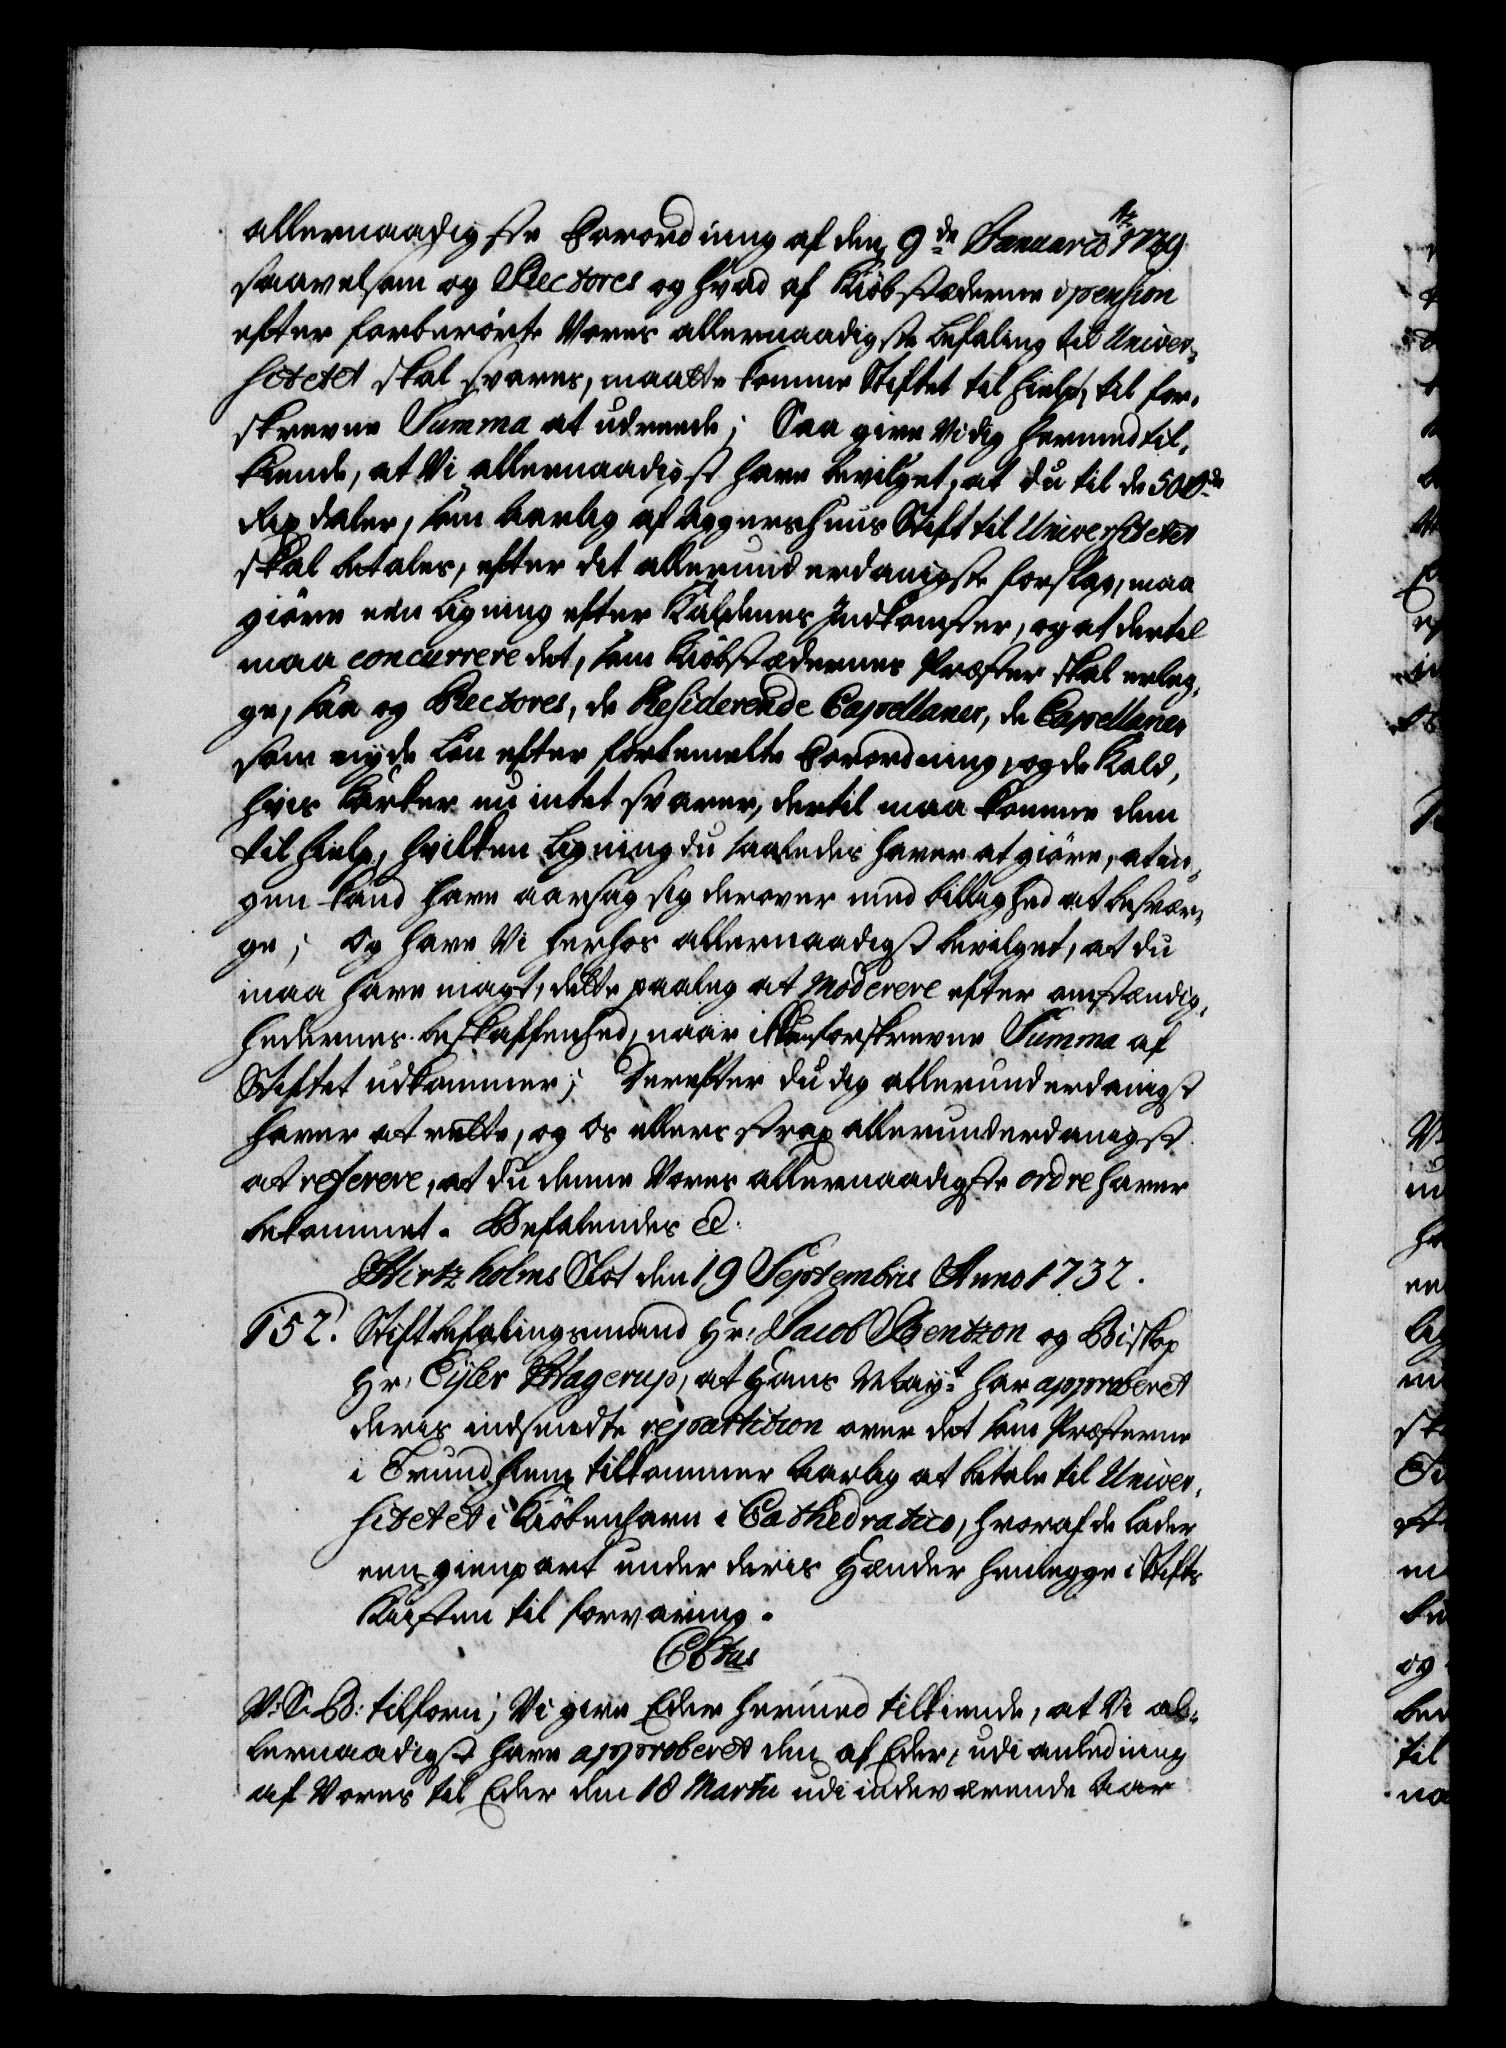 allernaadigste Forordning af den 9de Januarii Ao 1739
saavelsom og Rectores og hvad af Kiøbstæderne i pension
efter forberørte Vores allernaadigste befaling til Univer-
sitetet skal svares, maatte komme Stiftet til hielp, til for-
skrevne Summa at udreede; Saa give Vi dig hermed til-
kiende, at Vi allernaadigst have bevilget, at du til de 500de
Rixdaler, som aarlig af Aggershuus Stift til Universitetet
skal betales, efter det allerunderdanigste forslag, maa
giøre een ligning efter Kaldenes Indkomster, og at dertil
maa concurrere det, som Kiøbstædernes Præster skal erleg-
ge, saa og Rectores, de Residerende Capellaner, de Capellaner
som nyde løn efter forbemelte Forordning, og de Kald,
hvis Kirker nu intet svarer, dertil maa komme dem
til hielp, hvilken ligning du saaledes haver at giøre, at in-
gen kand have aarsag sig derover med billighed at besvær-
ge; Og have Vi herhos allernaadigst bevilget, at du
maa have magt, dette paaleg at moderere efter omstændig-
hedernes beskaffenhed, naar ikkun forskrevne Summa af
Stiftet udkommer; Derefter du dig allerunderdanigst
haver at rette, og os ellers strax allerunderdanigst
at referere, at du denne Vores allernaadigste ordre haver
bekommet. Befalendes &c.
Hirtzholms Slot den 19 Septembris Anno 1732.
152. Stiftbefalingsmand Hr: Jacob Bentzon og Biskop
Hr: Eyler Hagerup, at Hans Mayt: har approberet
deris indsendte repartition over det som Præsterne
i Trundhiem tilkommer aarlig at betale til Univer-
sitetet i Kiøbenhavn i Cathedratico, hvoraf de lader
een gienpart under deris Hænder henlegge i Stifts
Kisten til forvaring.
C6tus
V: S: B: tilforn; Vi give Eder hermed tilkiende, at Vi al-
lernaadigst have approberet den af Eder, udi anledning
af Vores til Eder den 18 Martii udi indeværende aar